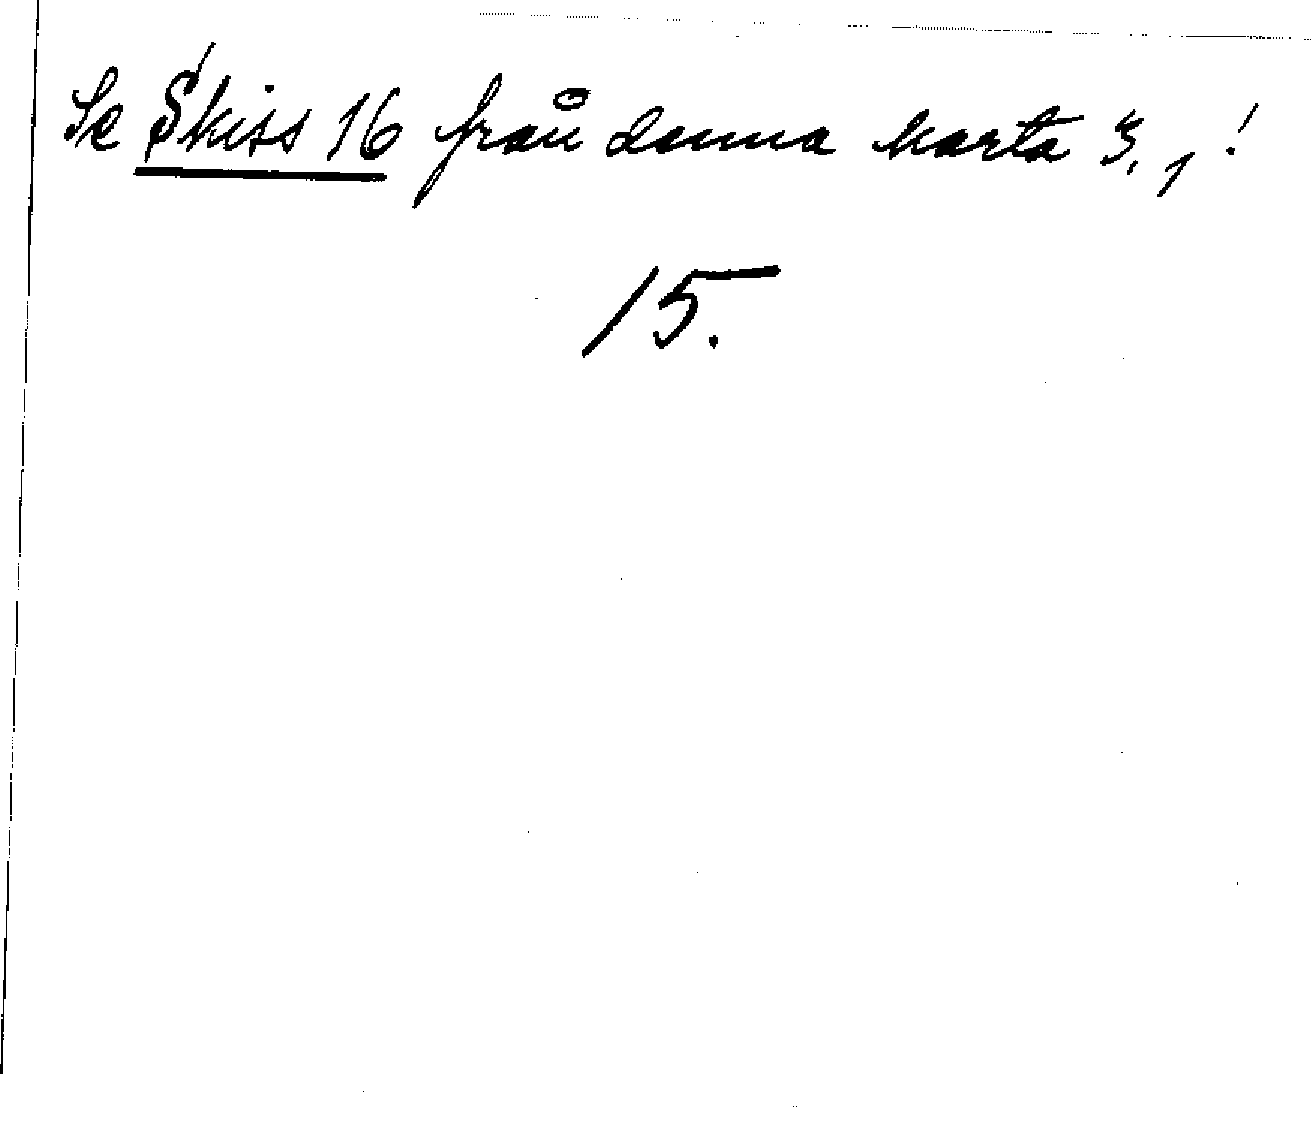 Se Skiss 16 från denna karta 3, 1!
15.